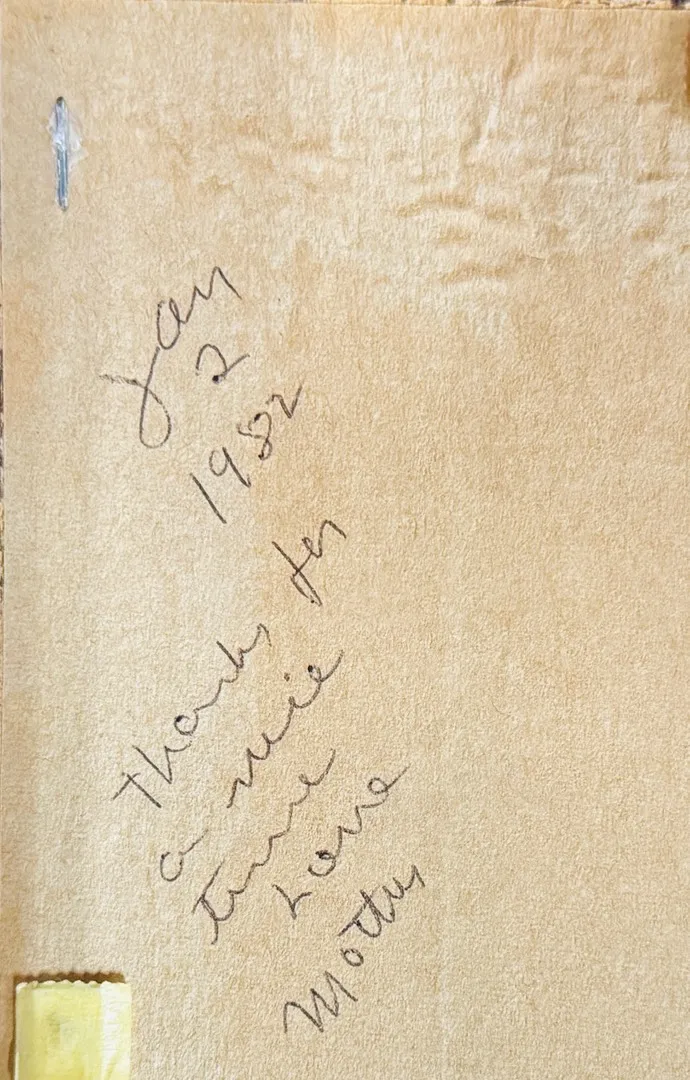 Jan
2
1982
Thanks for
a nice
time
Love
Mother